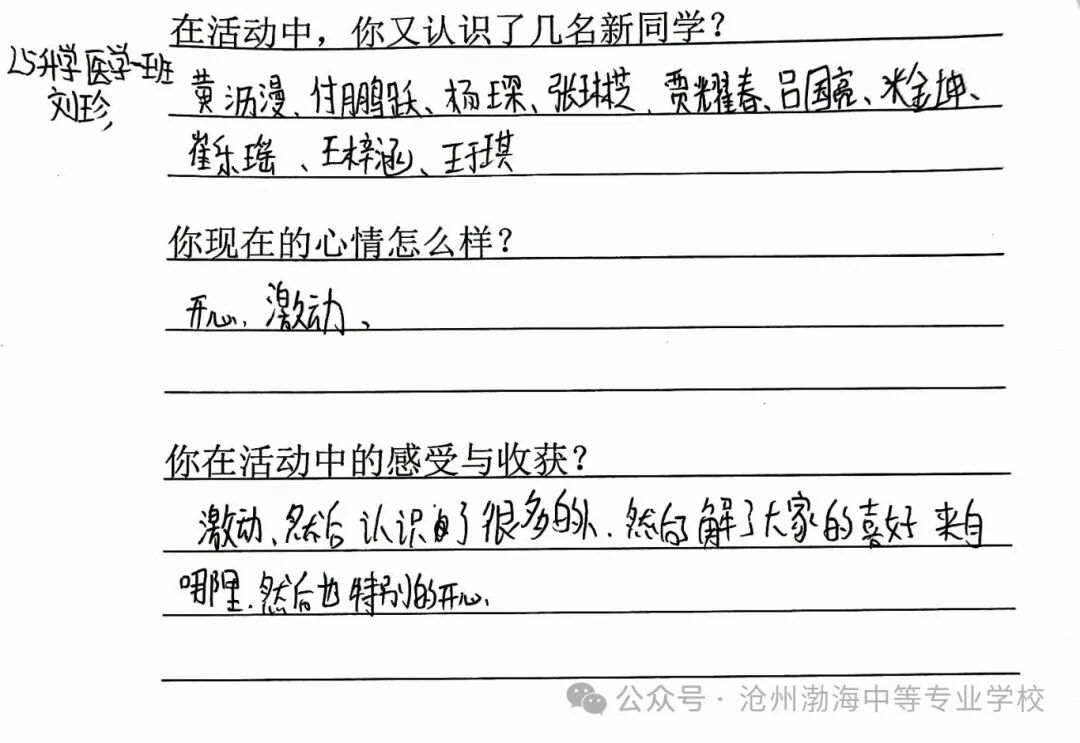 在活动中，你又认识了几名新同学？
25升学医学一班
刘珍
黄沥漫、付鹏跃、杨琛、张琳芝、贾耀春、吕国亮、米金坤、
崔乐瑶、王梓涵、王于琪
你现在的心情怎么样？
开心、激动、
你在活动中的感受与收获？
激动、然后认识了很多的人.然后了解了大家的喜好 来自
哪里.然后也特别的开心、
公众号·沧州渤海中等专业学校